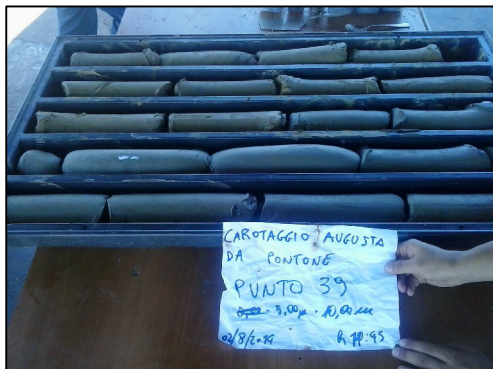 CAROTAGGIO AUGUSTA
DA PONTONE
PUNTO 39
5,00m - 10,00m
02/8/2019
h